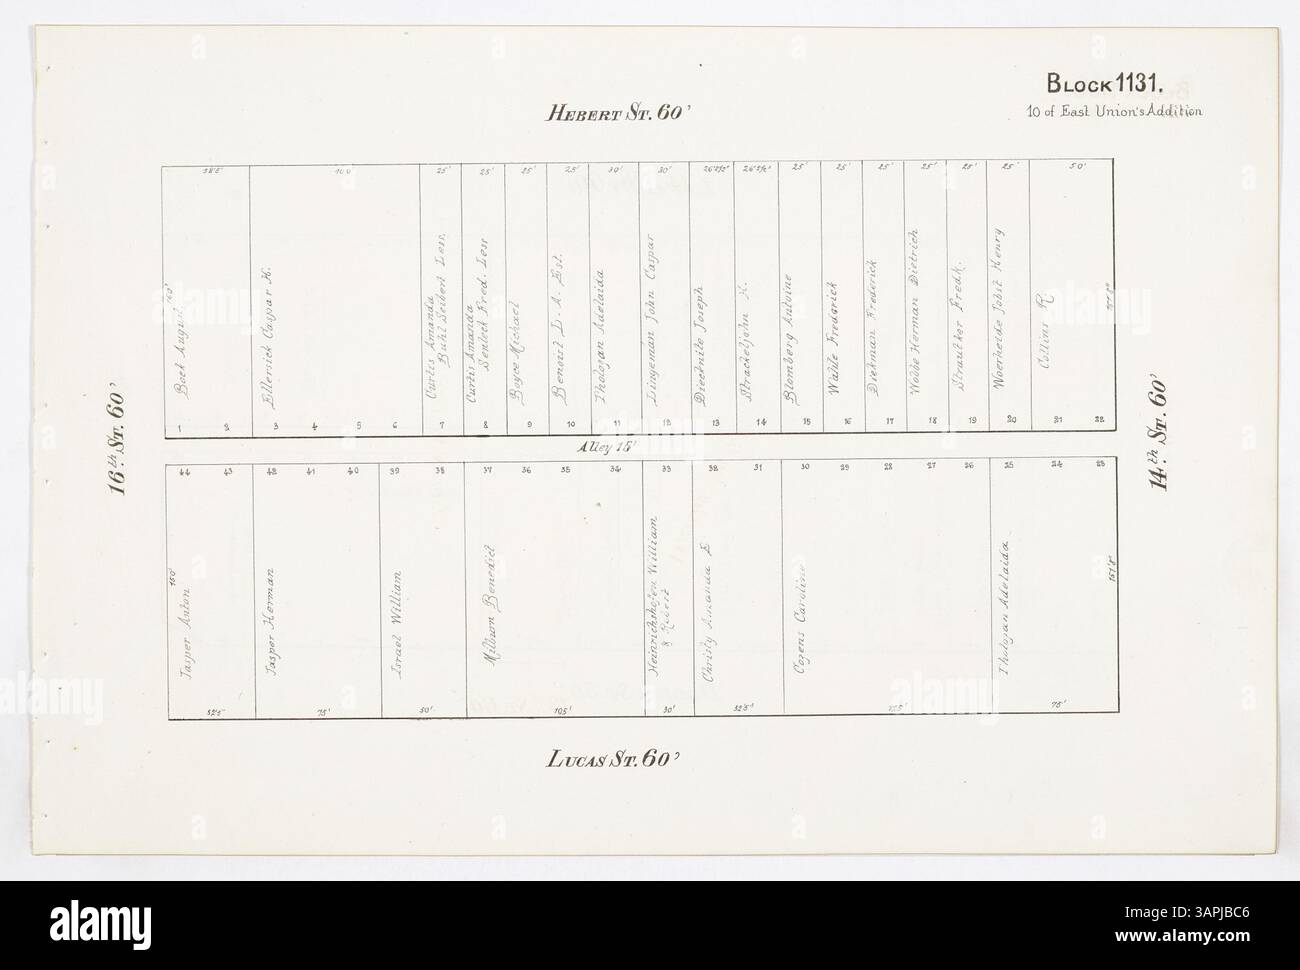 BLOCK 1131.
10 of East Union's Addition
HEBERT ST. 60'
100' 25' 25' 25' 25' 30' 30' 26'2½" 26'2½" 25' 25' 25' 25' 25' 25' 50'
150'
Bock August
Ellersick Caspar H.
Curtis Amanda
Buhl Seibert Less.
Curtis Amanda
Fred. Less
Boyce Michael
Benoist L. A. Est.
Tholozan Adelaida
Lingeman John Caspar
Diecknite Joseph
Strackeljohn H.
Blomberg Antoine
Wahle Frederick
Dickman Frederick
Wobbe Herman Dietrich
Straucker Fredk.
Woerheide Jobst Henry
Collins R
1 2 3 4 5 6 7 8 9 10 11 12 13 14 15 16 17 18 19 20 21 22
16th ST. 60'
Alley 15'
14th ST. 60'
44 43 42 41 40 39 38 37 36 35 34 33 32 31 30 29 28 27 26 25 24 23
150'
Jasper Anton
Jasper Herman
Israel William
Milburn Benedict
Heinrichshofen William
& Robert
Christy Amanda E
Cozens Caroline
Tholozan Adelaida
151'8"
52'5" 75' 50' 105' 30' 52'5" 75'
LUCAS ST. 60'
alamy
Image ID: 3APJBC6
www.alamy.com